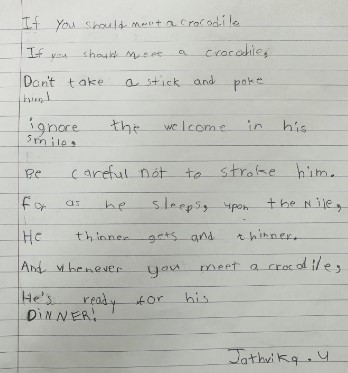 If You should meet a crocodile
If you should meet a crocodile,
Don't take a stick and poke
him!
ignore the welcome in his
smile,
Be careful not to stroke him.
For as he sleeps, upon the Nile,
He thinner gets and thinner.
And whenever you meet a crocodile,
He's ready for his
DiNNER!
Jathvika . U